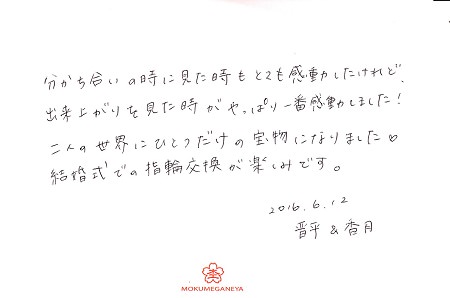 分かち合いの時に見た時もとても感動したけれど、
出来上がりを見た時がやっぱり一番感動しました！
二人の世界にひとつだけの宝物になりました♡
結婚式での指輪交換が楽しみです。
2016.6.12
晋平 & 香月
MOKUMEGANEYA